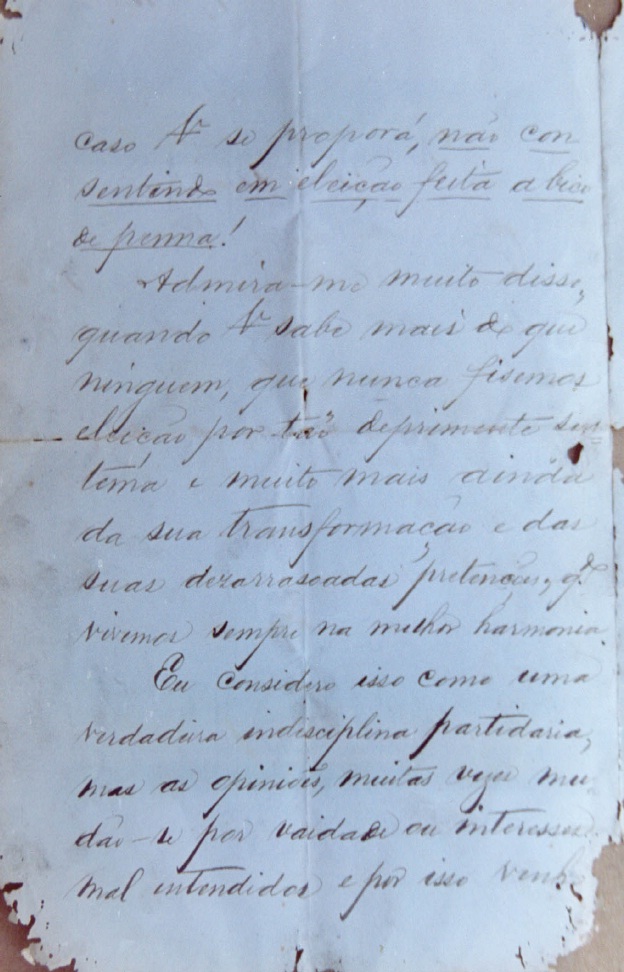 caso Vᶜᵉ se proporá, não con
sentindo em eleição feita a bico
de penna!
Admira-me muito disso,
quando Vᶜᵉ sabe mais do que
ninguem, que nunca fisemos
eleição por tão deprimente sys
tema e muito mais ainda
da sua transformação e das
suas dezarrasoadas pretenções, q.do
vivemos sempre na melhor harmonia.
Eu considero isso como uma
verdadeira indisciplina partidaria,
mas as opiniões, muitas vezes mu
dão-se por vaidade ou interesses
mal intendidos e por isso venh